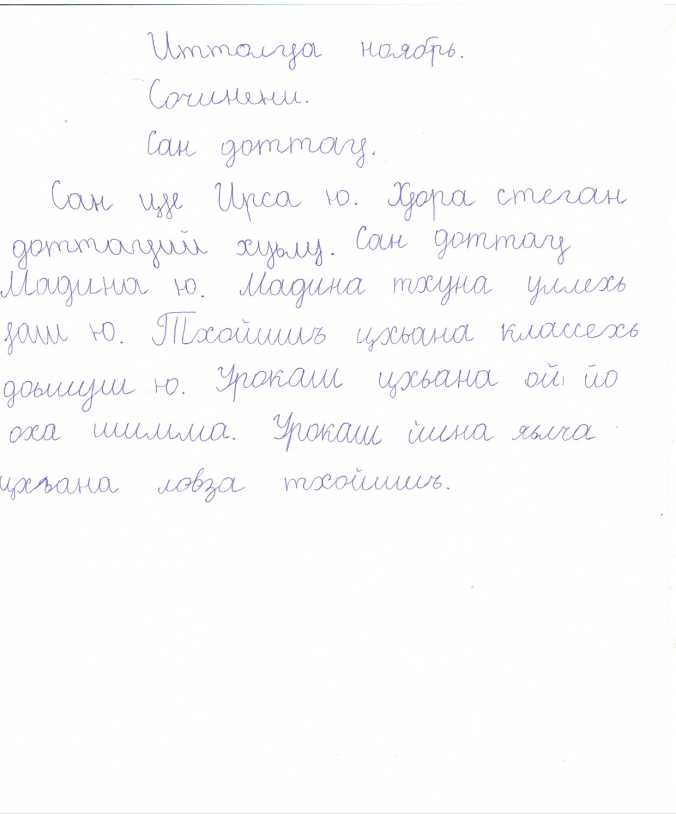 Итталгӏа ноябрь.
Сочинени.
Сан доттагӏ.
Сан цӏе Ирса ю. Хӏора стеган
доттагӏий хуьлу. Сан доттагӏ
Мадина ю. Мадина тхуна уллехь
ӏаш ю. Тхойшиъ цхьана классехь
доьшуш ю. Урокаш цхьана ой, йо
оха шимма. Урокаш йина яьлча
цхьана ловза тхойшиъ.